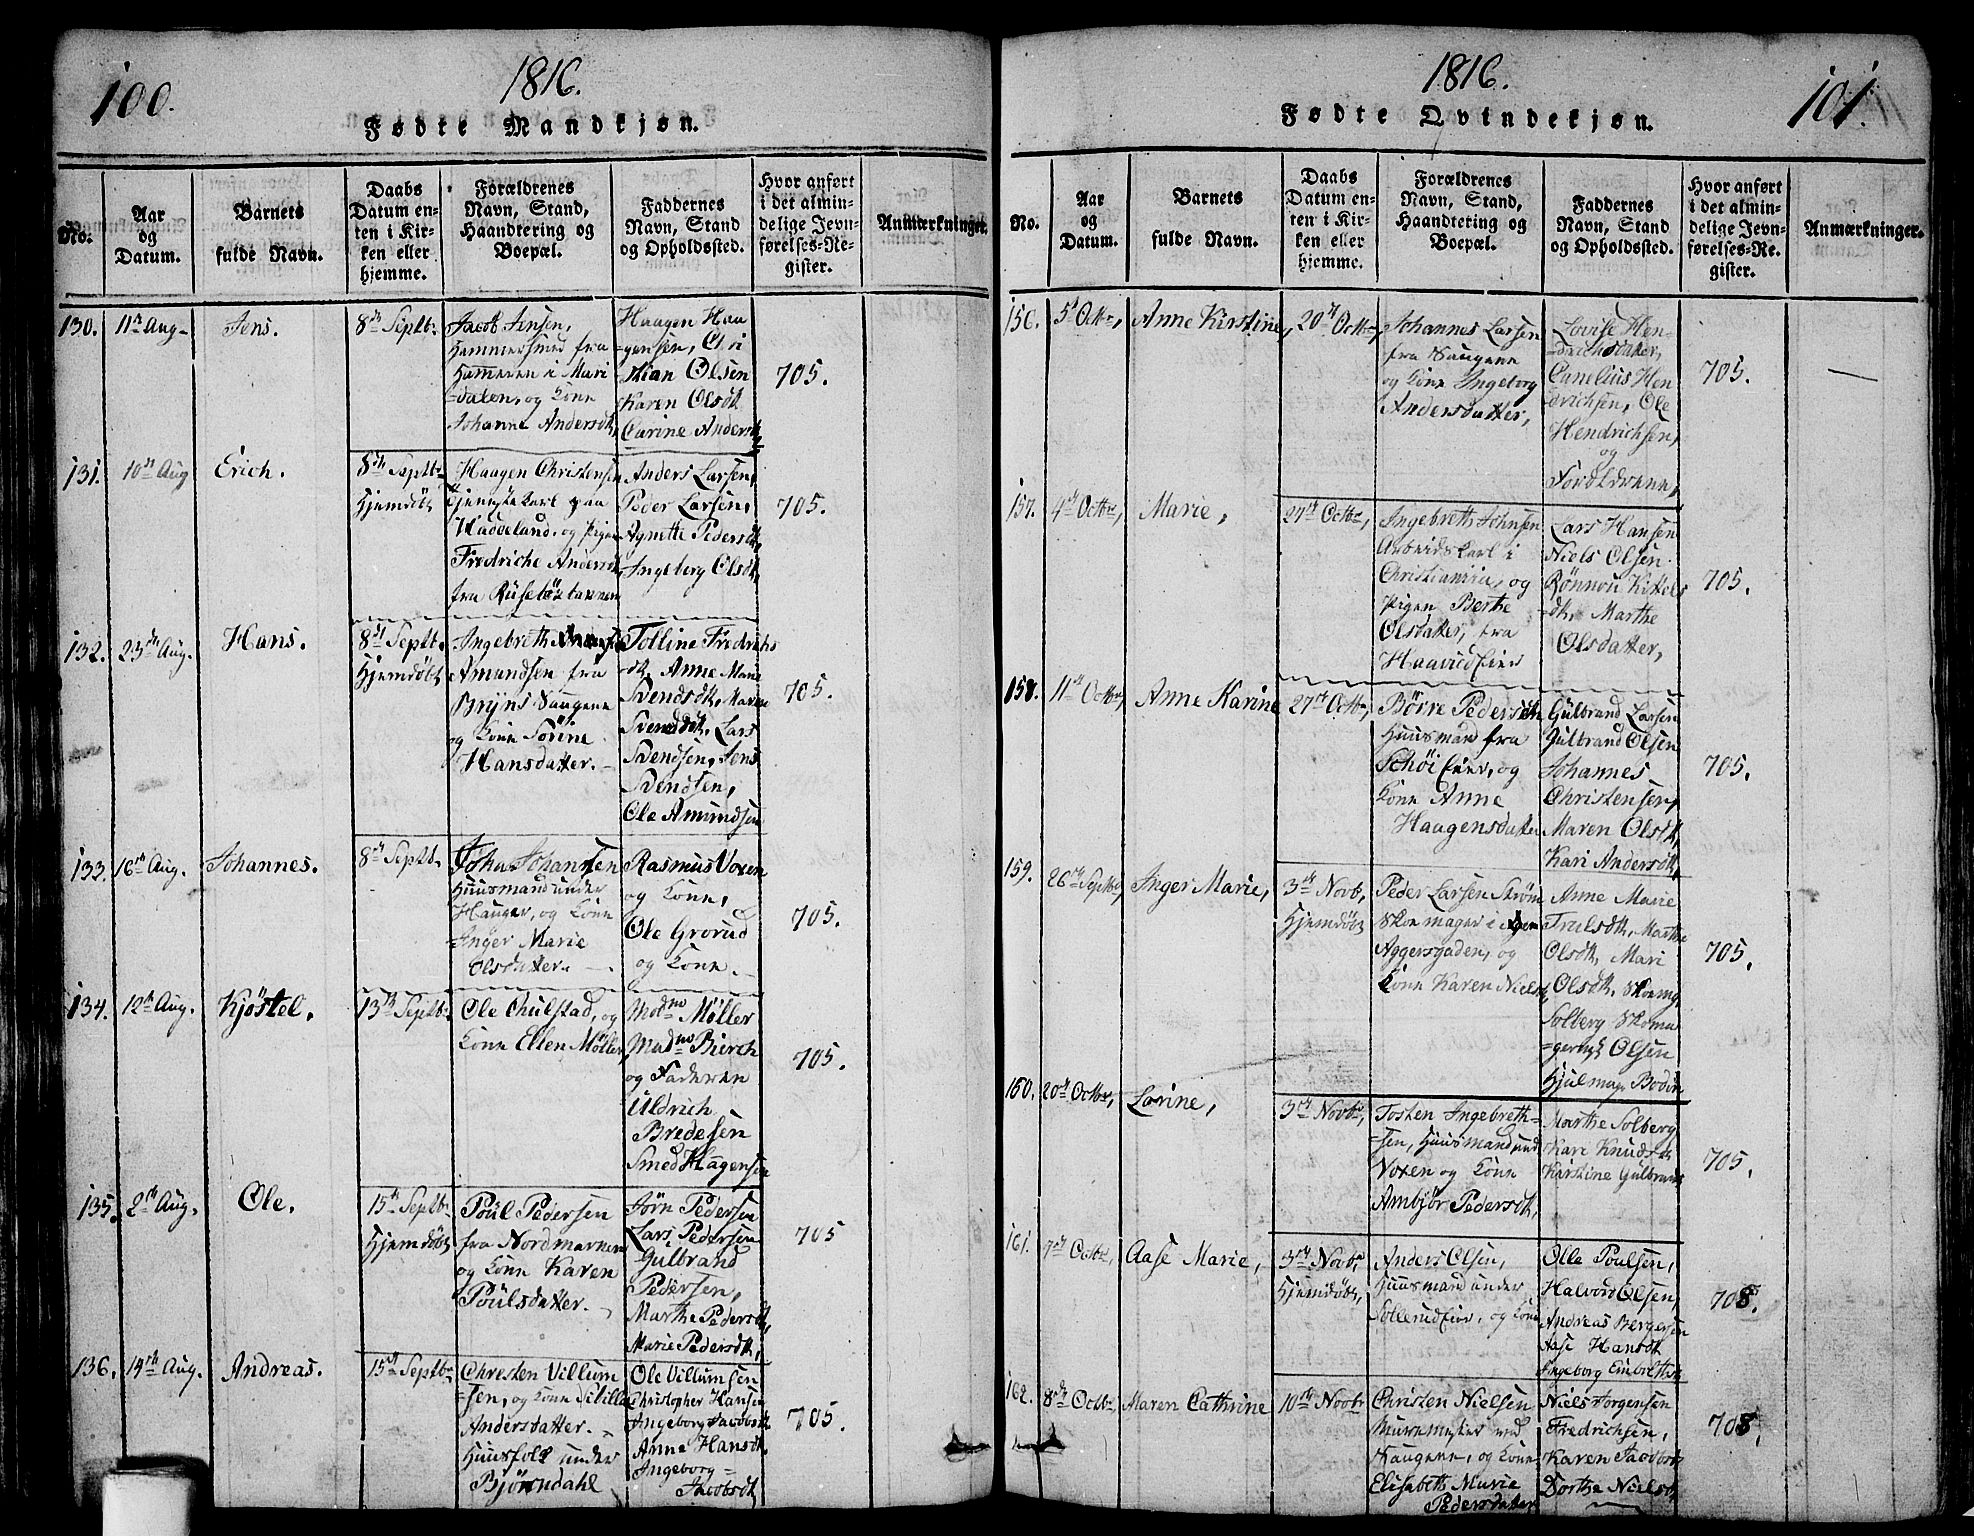 100.
1816.
Fødte Mandkjøn.
No.
Aar
og
Datum.
Barnets
fulde Navn.
Daabs
Datum en-
ten i Kir-
ken eller
hjemme.
Forældrenes
Navn, Stand,
Haandtering og
Boepæl.
Faddernes
Navn, Stand
og Opholdssted.
Hvor anført
i det almin-
delige Jevn-
førelses-Re-
gister.
Anmærkninger.
130.
11te Aug.
Jens.
8de Septb.
Jacob Jensen,
Hammersmed fra
Hammeren i Mari
=dalen, og Kone
Johanne Andersdt,
Haagen Haa
=gensen, Chri
stian Olsen
Karen Olsdt
Carine Andersdt,
705.
131.
10de Aug
Erich.
8de Septb.
Hjemdöbt
Haagen Christensen
Tjenestekarl paa
Hadeland, og Pigen
Fredriche Andersdt
fra
Anders Larsen,
Peder Larsen,
Agnette Pedersdt,
Ingeborg Olsdt,
705.
132.
23de Aug.
Hans.
8de Septb.
Hjemdöbt
Ingebreth
Amundsen fra
Bryns Saugene
og Kone Sörine
Hansdatter.
Tolline Fredrichs
dt, Anne Marie
Svendsdt, Maren
Svendsdt, Lars
Svendsen, Jens
Svendsen,
Ole Amundsen
705.
133.
16de Aug.
Johannes.
8de Septb.
John Johansen
Huusmand under
Hauger, og Kone
Inger Marie
Olsdatter.
Rasmus Voxen
og Kone,
Ole Grorud
og Kone.
705.
134.
12te Aug.
Kjöstel.
13de Septb.
Ole Chulstad, og
Kone Ellen Møller
Madme Møller
Madme Bierch
og Faderen
Uldrich
Bredesen
Smed Hagensen
705.
135.
2de Aug.
Ole.
15de Septb.
Hjemdöbt
Poul Pedersen
fra Nordmarken
og Kone Karen
Poulsdatter.
Jörn Pedersen
Lars Pedersen
Gulbrand
Pedersen,
Marthe Pedersdt,
Marie Pedersdt,
705
136.
14de Aug.
Andreas.
15de Septbr
Christen Villum
=sen, og Kone Sibilla
Andersdatter.
Huusfolk under
Bjørndahl
Ole Villumsen
Christopher Hansen
Ingeborg Jacobsdt
Anne Hansdt,
Ingeborg
Jacobsdt
705.
1816.
101.
Fødte Qvindekjøn.
No.
Aar
og
Datum.
Barnets
fulde Navn.
Daabs
Datum en-
ten i Kir-
ken eller
hjemme.
Forældrenes
Navn, Stand,
Haandtering og
Boepæl.
Faddernes
Navn, Stand
og Opholdssted.
Hvor anført
i det almin-
delige Jevn-
førelses-Re-
gister.
Anmærkninger.
156.
5te Octbr,
Anne Kirstine,
20de Octbr,
Johannes Larsen
fra Saugene
og Kone Ingeborg
Andersdatter,
Lovise Hen-
=drichsdatter,
Cunelius Hen
drichsen, Ole
Hendrichsen,
og
Forældrene,
705.
157.
4de Octbr,
Marie,
27de Octbr,
Ingebreth Johnsen
Arbeidskarl i
Christiania, og
Pigen Berthe
Olsdatter, fra
Haavudeier
Lars Hansen
Niels Olsen
Rönnou Kittels
dt, Marthe
Olsdatter,
705.
158.
11te Octbr,
Anne Karine
27de Octbr,
Börre Pedersen
Huusmand fra
Schöieier, og
Kone Anne
Haagensdatter
Gulbrand Larsen
Gulbrand Olsen
Johannes
Christensen,
Maren Olsdt,
Kari Andersdt,
705.
159.
26de Septbr,
Inger Marie,
3de Novb,
Hjemdöbt
Peder Larsen Ström
Skomager i
Aggersgaden, og
Kone Karen Nielsdt,
Anne Marie
Trulsdt, Marthe
Olsdt, Mari
Olsdt, Skomag
Solberg Skoma
=ger Olsen
Hjulmag Bodin
705.
160.
20de Octbr,
Lorine,
3de Novbr,
Tosten Ingebreth-
=sen, Huusmand und
Voxen og Kone
Ambjör Pedersdt,
Marthe Solberg
Kari Knudsdt
Kirstine Gulbrands
705.
161.
7de Octbr,
Aase Marie,
3de Novbr
Hjemdöbt,
Anders Olsen,
Huusmand under
Sollerudeier, og Kone
Olle Poulsen,
Halvor Olsen,
Andreas Bergersen
Aase Hansdt
Ingeborg
708.
162.
8de Octbr,
Maren Cathrine
10de Novbr
Christen Nielsen
Muurmester ved
Saugene, og Kone
Elisabeth Marie
Pedersdatter
Niels Jorgensen
Fredrichsen,
Karen Jacobsdt
Dorthe Nielsdt,
708.